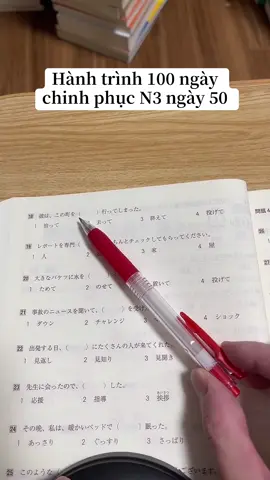 Hành trình 100 ngày
chinh phục N3 ngày 50
18 彼は、この町を( )行ってしまった。
1 捨って 2 去って 3 終えて 4 投げて
19 レポートを専門( )ちんとチェックしてもらってください。
1 人 3 客 4 屋
20 大きなバケツに水を(
1 ためて 2 のせて 4 投げて
21 事故のニュースを聞いて、( )を受け
1 ダウン 2 チャレンジ 4 ショック
22 出発する日、( )にたくさんの人が来てくれた。
1 見返し 2 見知り 3 見聞き
23 先生に会ったので、( )した。
1 応援 2 指導 3 挨拶
24 その晩、私は、暖かいベッドで( )眠った。
1 あっさり 2 ぐっすり 3 さっぱり
25 このような
ございます。
問題4